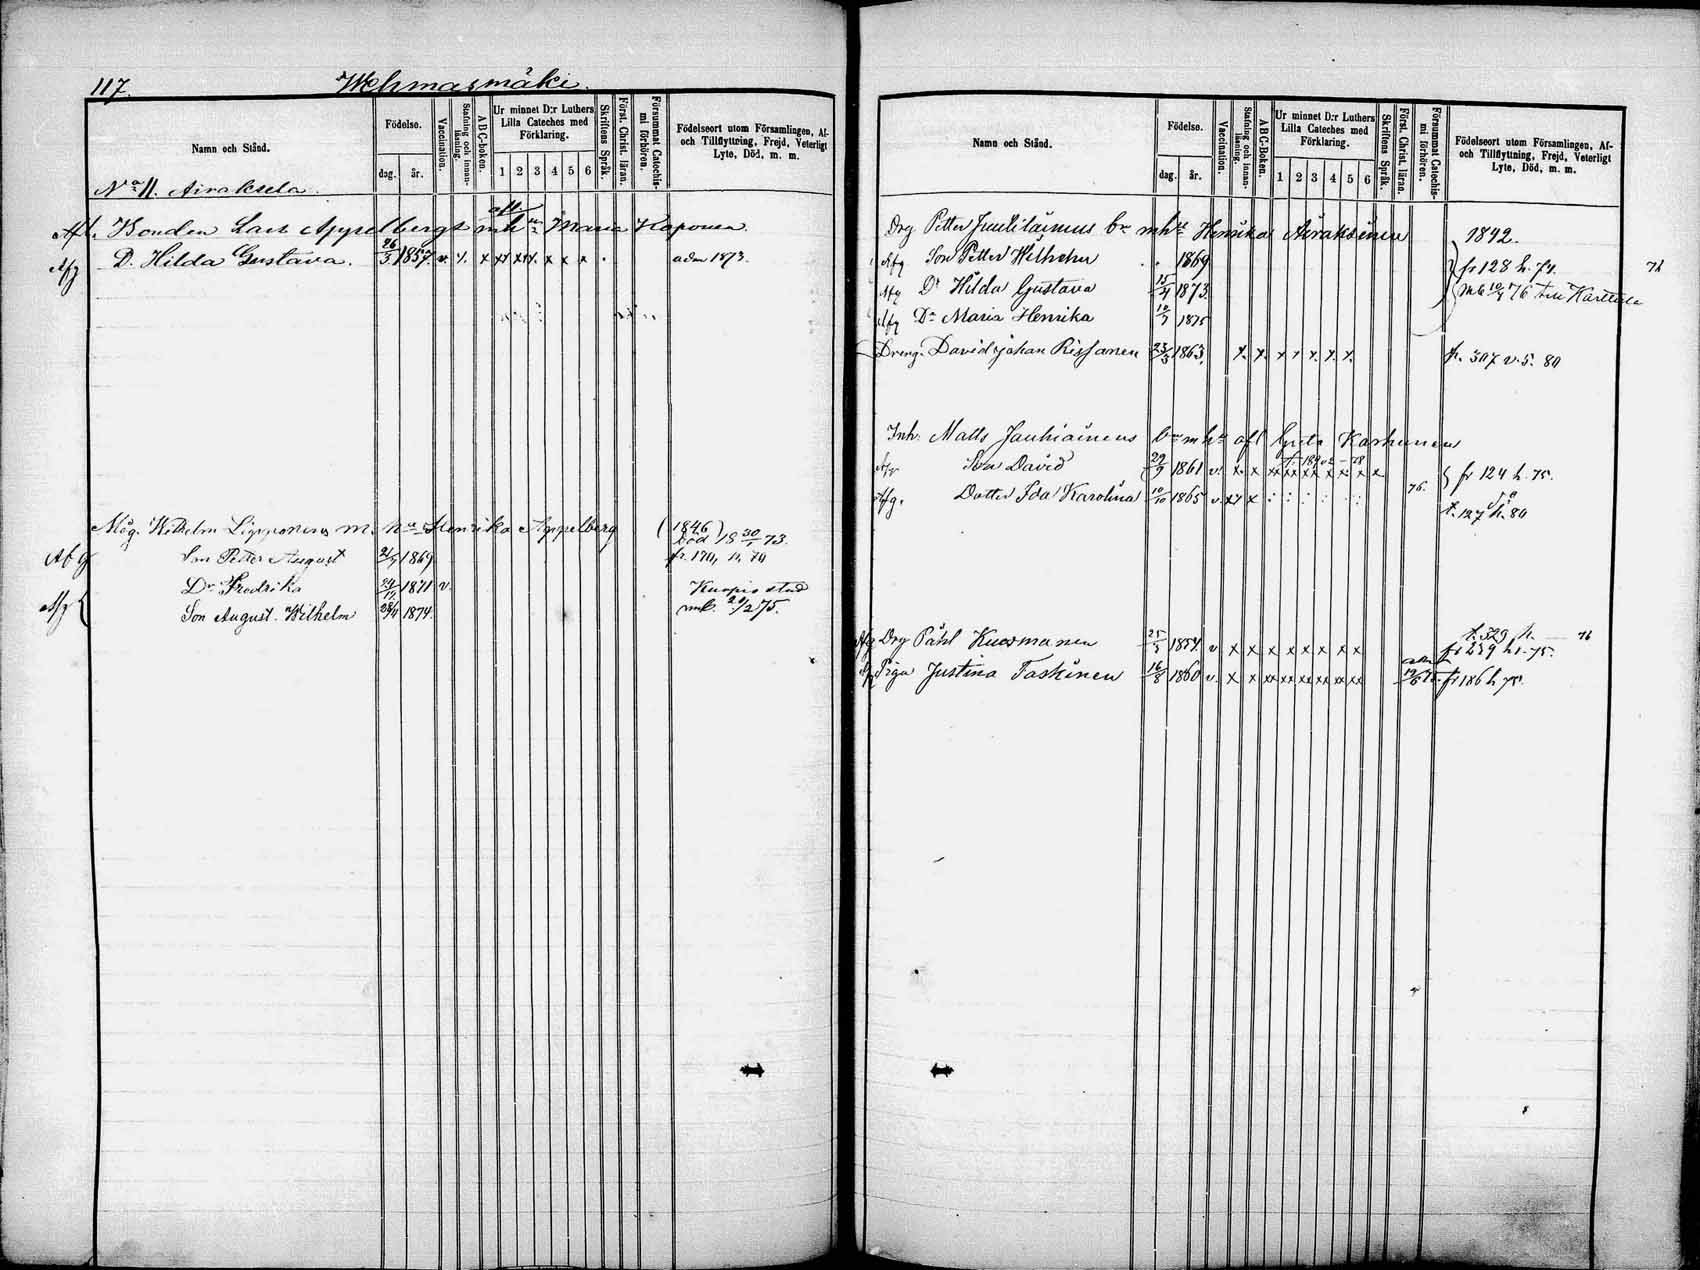 117. Wehmasmäki.
Namn och Stånd.
Födelse.
dag. år.
Vaccination.
Stafning och innanläsning.
ABC-boken.
Ur minnet D:r Luthers Lilla Cateches med Förklaring.
1 2 3 4 5 6
Skriftens Språk.
Först. Christ. läran.
Försummat Catechismi förhören.
Födelseort utom Församlingen, Af- och Tillflyttning, Frejd, Veterligt Lyte, Död, m. m.
No 11. Airaksela.
Afl. Bonden Lars Appelbergs mhu Maria Kaponen
Afg D. Hilda Gustava. 26/3 1857. v. x x xx xx x x x adm 1873.
Måg. Wilhelm Lipponens m. Henrika Appelberg (1846) Död 18 30/1 73.
Afg Son Petter August 21/7 1869 fr. 170, h. 70
Dr Fredrika 24/12 1871 v. Kuopio stad
Afg Son August Wilhelm 28/4 1874. mb. 20/2 75.
Namn och Stånd.
Födelse.
dag. år.
Vaccination.
Stafning och innanläsning.
ABC-Boken.
Ur minnet D:r Luthers Lilla Cateches med Förklaring.
1 2 3 4 5 6
Skriftens Språk.
Först. Christ. läran.
Försummat Catechismi förhören.
Födelseort utom Församlingen, Af- och Tillflyttning, Frejd, Veterligt Lyte, Död, m. m.
Drg Petter mh Henrika Airaksinen 1842.
Afg Son Petter Wilhelm 1869 fr 128 h. 74.
Afg Dr Hilda Gustava 15/4 1873. mb 10/4 76 till Karttula
Afg Dr Maria Henrika 12/7 1875
Dreng. David Johan Rissanen 23/3 1863. x x x x x x x fr. 307 v. s. 80
Inh. Matts Jauhiainens mh afl Greta Karhunen
Afg Son David 29/9 1861 v. x x xx xx xx x x x x fr 124 h. 75.
Afg. Dotter Ida Karolina 10/10 1865 v. xx x 76. t. 127 h. 80
t. 329 h. 76
Afg Drg Påhl Kuosmanen 25/3 1854. v x x x x x x x x fr 239 h 75.
Afg Piga Justina Taskinen 16/8 1860 v. x x xx xx xx xx xx xx fr 186 h 75.